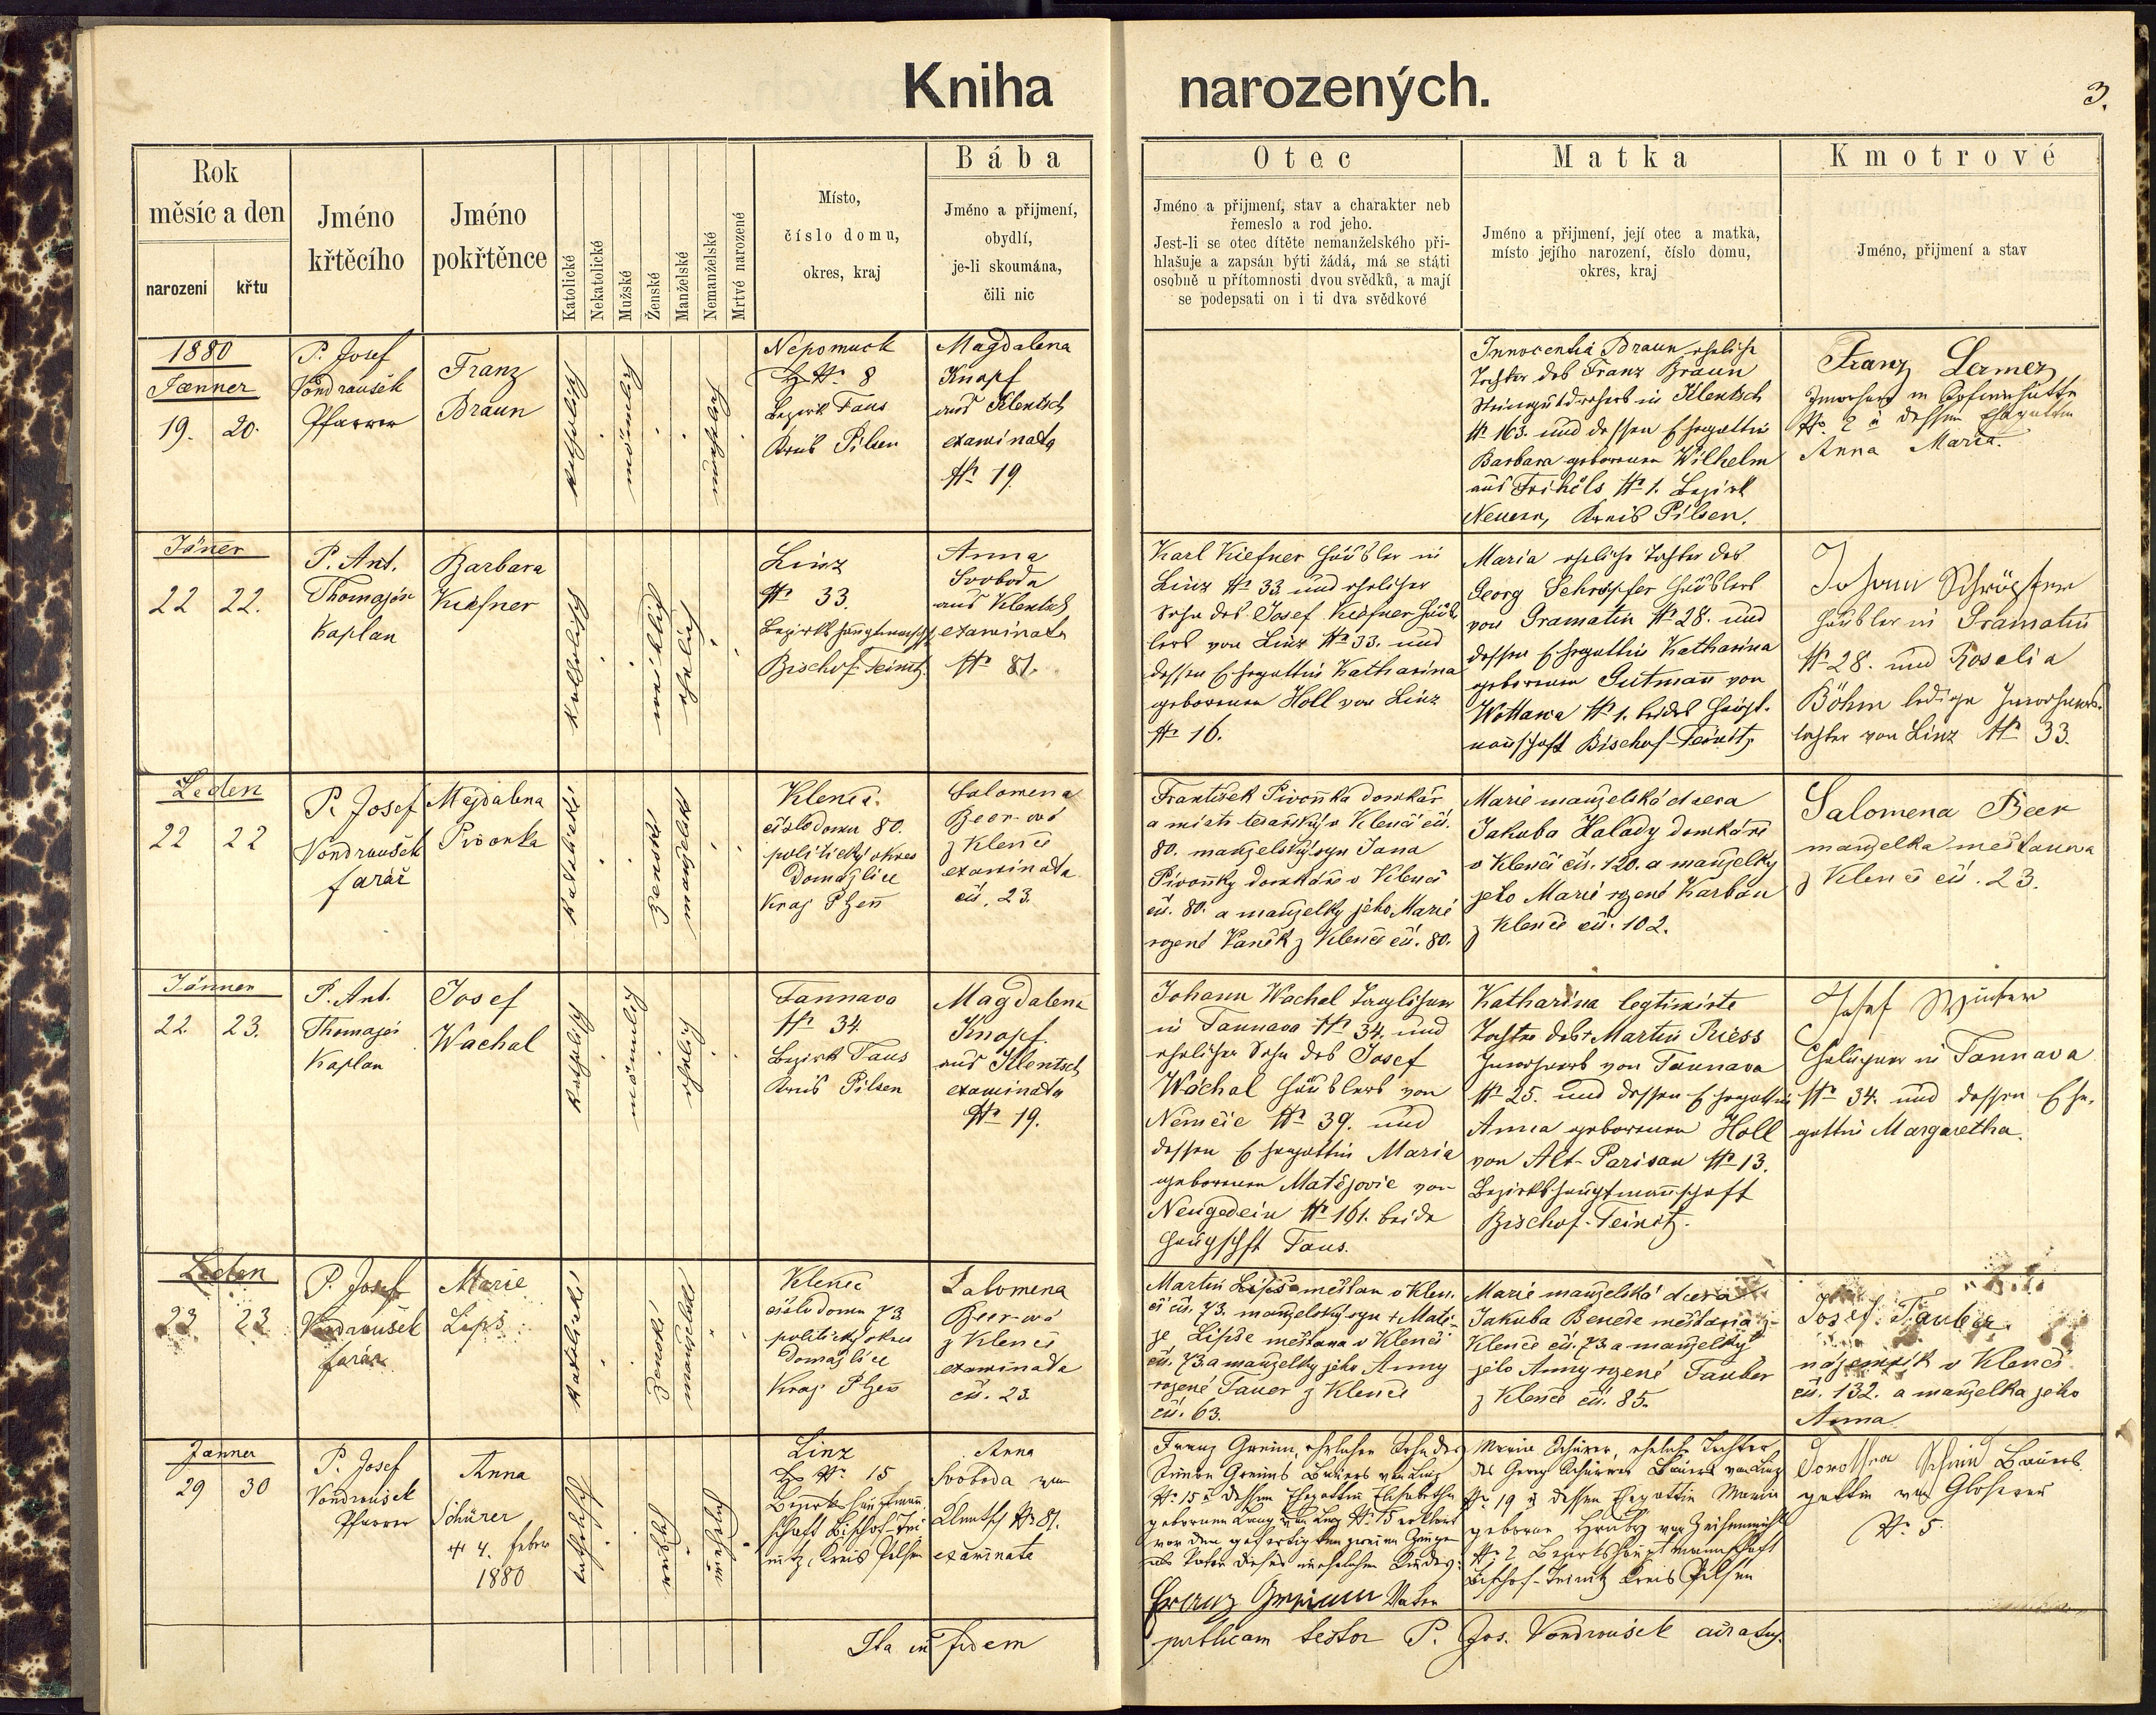 Kniha narozených.
3.
Rok
měsíc a den
narození
křtu
Jméno
křtěcího
Jméno
pokřtěnce
Katolické
Nekatolické
Mužské
Ženské
Manželské
Nemanželské
Mrtvé narozené
Místo,
číslo domu,
okres, kraj
Bába
Jméno a přijmení,
obydlí,
je-li skoumána,
čili nic
Otec
Jméno a přijmení, stav a charakter neb
řemeslo a rod jeho.
Jest-li se otec dítěte nemanželského při-
hlašuje a zapsán býti žádá, má se státi
osobně u přítomnosti dvou svědků, a mají
se podepsati on i ti dva svědkové
Matka
Jméno a přijmení, její otec a matka,
místo jejího narození, číslo domu,
okres, kraj
Kmotrové
Jméno, přijmení a stav
1880
Jænner
19. 20.
P. Josef
Vondraušek
Pfarrer
Franz
Braun
katholisch
männlich
unehelich
Nepomuck
N. 8
Bezirk Taus
Kreis Pilsen
Magdalena
Knopf
aus Klentsch
examinata
N. 19
Innocentia Braun eheliche
Tochter des Franz Braun
in Klentsch
N. 163. und dessen Ehegattin
Barbara geborenen Wilhelm
aus N. 1. Bezirk
Neuern, Kreis Pilsen.
Franz
Inwohner in
N. 2 u dessen Ehegattin
Anna Maria.
Jäner
22 22.
P. Ant.
Thomajer
Kaplan
Barbara
Kiefner
katholisch
weiblich
ehelich
Linz
N. 33.
Bezirkshauptmannschft
Bischof-Teinitz
Anna
Svoboda
aus Klentsch
examinata
N. 81.
Karl Kiefner Häusler in
Linz N. 33 und ehelicher
Sohn des Josef Kiefner Häus
lers von Linz N. 33. und
dessen Ehegattin Katharina
geborenen Holl von Linz
N. 16.
Maria eheliche Tochter des
Georg Schröpfer Häuslers
von Gramatin N. 28. und
dessen Ehegattin Katharina
geborenen Gutmann von
Wottawa N. 1. beides Haupt-
mannschaft Bischof-Teinitz
Johann Schröpfer
Häusler in Gramatin
N. 28. und Rosalia
Böhm ledige Inwohners-
tochter von Linz N. 33.
Leden
22 22
P. Josef
Vondraušek
farář
Majdalena
Pivonka
katolické
ženské
manželské
Klenči
číslo domu 80.
politický okres
Domažlice
Kraj Plzeň
Salomena
Beer-ová
z Klenče
examinata
čís. 23.
František Pivoňka domkář
a mistr tesařský v Klenčí čís.
80. manželský syn Jana
Pivoňky domkáře v Klenčí
čís. 80. a manželky jeho Marie
rozené Vaněk z Klenčí čís. 80.
Marie manželská dcera
Jakuba Halady domkáře
v Klenčí čís. 120. a manželky
jeho Marie rozené Karban
z Klenčí čís. 102.
Salomena Beer
manželka mešťana
z Klenčí čís. 23.
Jänner
22. 23.
P. Ant.
Thomajer
Kaplan
Josef
Wachal
katholisch
männlich
ehelich
Tannava
N. 34
Bezirk Taus
Kreis Pilsen
Magdalena
Knopf
aus Klentsch
examinata
N. 19.
Johann Wachal Taglöhner
in Tannava N. 34. und
ehelicher Sohn des Josef
Wachal Häuslers von
Němčic N. 39. und
dessen Ehegattin Maria
geborenen Matějovic von
Neugedein N. 161. beide
Hauptschft Taus.
Katharina legtimirte
Tochter des Martin Riess
Inwohners von Tannava
N. 25. und dessen Ehegattin
Anna geborenen Holl
von Alt-Parisau N. 13.
Bezirkshauptmannschaft
Bischof-Teinitz.
Josef Winter
in Tannava
N. 34. und dessen Ehe-
gattin Margaretha.
Leden
23 23
P. Josef
Vondraušek
farář
Marie
Lipš
katolické
ženské
manželské
Klenčí
číslo domu 73
politický okres
Domažlice
Kraj Plzeň
Salomena
Beer-ová
z Klenčí
examinata
čís. 23.
Martin Lipš mešťan v Klen-
čí čís. 73. manželský syn † Matě-
je Lipše mešťana v Klenčí
čís. 73 a manželky jeho Anny
rozené Tauer z Klenčí
čís. 63.
Marie manželská dcera
Jakuba Beneše mešťana z
Klenčí čís. 73 a manželky
jeho Anny rozené Tauber
z Klenčí čís. 85.
Josef Tauber
nájemník v Klenčí
čís. 132. a manželka jeho
Anna
Jænner
29 30
P. Josef
Vondraušek
Pfarrer
Anna
Schürer
† 4. feber
1880
katholisch
weiblich
unehelich
Linz
N. 15
Bezirkshauptmann
schaft Bischof-Tei
nitz, Kreis Pilsen
Anna
Svoboda von
Klentsch N. 81.
examinata
Franz Greim, ehelicher Sohn des
Simon Greims Bauers von Linz
N. 15 u dessen Ehegattin Elisabetha
geborenen Lang von Linz N. 15 erklärt
vor den gefertigten zweien Zeugen
als Vater dieses unehelichen Kindes:
Franz Greim Vater
Maria Schürer, eheliche Tochter
des Georg Schürer Bauers von Linz
N. 19 u dessen Ehegattin Maria
geborene Hruby von
N. 2 Bezirkshauptmannschaft
Bischof-Teinitz Kreis Pilsen
Dorothea Schmid Bauers-
gattin von
N. 5
Ita in fidem publicam testor P. Jos. Vondraušek